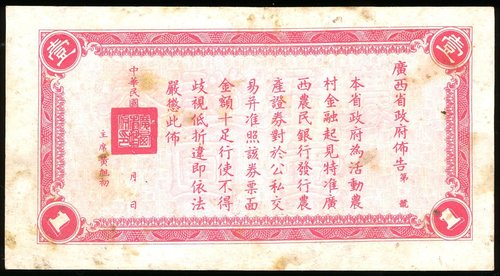 壹
壹
廣西省政府佈告第 號
本省政府為活動農
村金融起見特准廣
西農民銀行發行農
產證券對於公私交
易并准照該券票面
金額十足行使不得
歧視低折違即依法
嚴懲此佈
中華民國 月 日
主席黃旭初
1
1